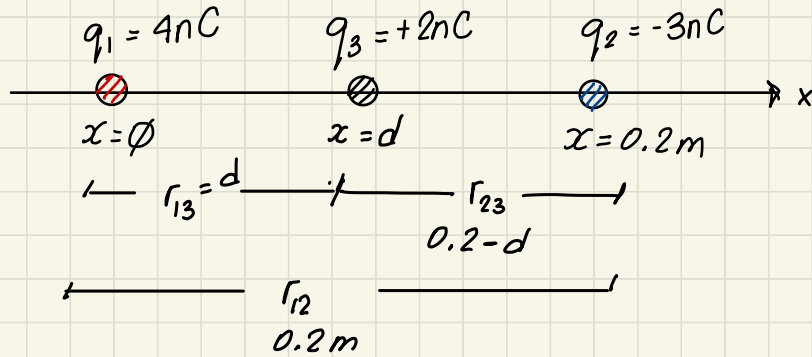 q₁ = 4nC q₃ = +2nC q₂ = -3nC
x
x = ∅ x = d x = 0.2m
r₁₃ = d r₂₃
0.2-d
r₁₂
0.2m